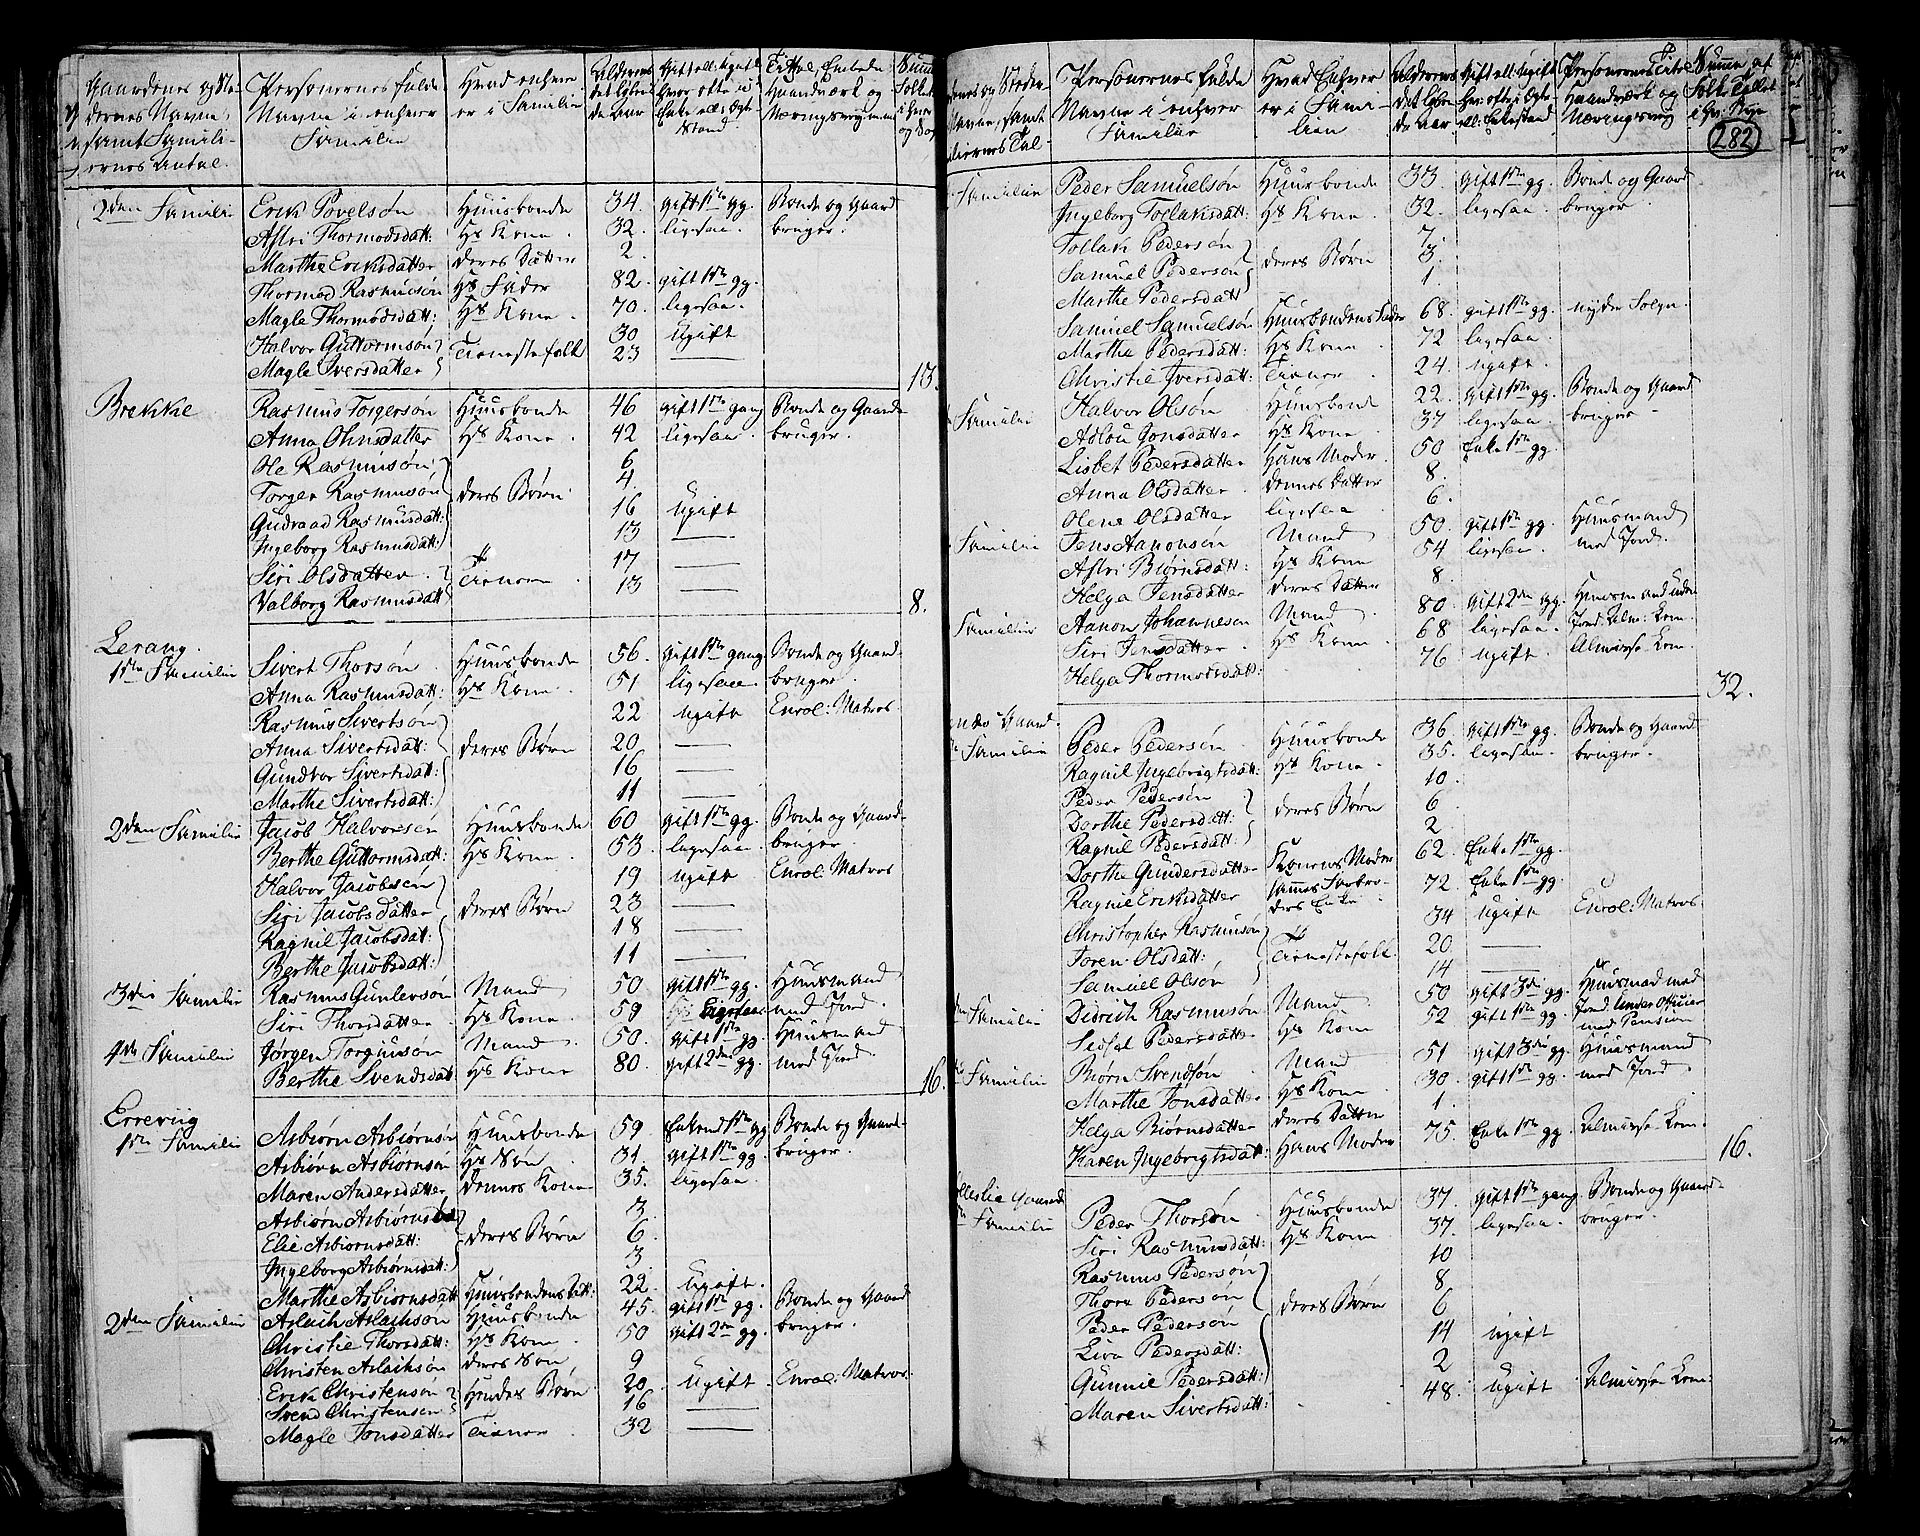 Gaardenes og Ste-
dernes Navne,
samt Famili-
ernes Antal.
Personernes fulde
Navne i enhver
Familie
Hvad enhver
er i Familien
Alderens
det løben-
de Aar
Gift ell: Ugift
hvor ofte i
Enke ell: Egte-
stand
Tittel, Embede
Haandværk og
Næringsvej
2den Familie Erik Povelsøn Huusbonde 34. gift 1ste gg. Bonde og Gaard
Asbri Thormodsdatt: Hs Kone 32. ligesaa. bruger.
Marthe Eriksdatter deres Datter 2.
Thormod Rasmusøn Hs Fader 82. gift 1ste gg.
Magle Thormodsdatt: Hs Kone 70. ligesaa.
Halvor Guttormsøn Tienestefolk 30 ugift
Magle Iversdatter 23 —
13.
Brekke Rasmus Torgersøn Huusbonde 46 gift 1ste gang Bonde og Gaard-
Anna Ohnsdatter Hs Kone 42 ligesaa. bruger.
Ole Rasmusøn 6
Torger Rasmusøn deres Børn 4.
Gudraad Rasmusdatt: 16 ugift
Ingeborg Rasmusdatt: 13 —
Siri Olsdatter Tienere 17 —
Valborg Rasmusdatt 13 —
8.
Lerang.
1ste Familie Sivert Thorsøn Huusbonde 56. gift 1ste gang. Bonde og Gaard-
Anna Rasmusdatt: Hs Kone 51. ligesaa. bruger.
Rasmus Sivertsøn 22 ugift Enrol: Matros.
Anna Sivertsdatt: deres Børn 20 —
Gundvor Sivertsdatt: 16 —
Marthe Sivertsdatt: 11 —
2den Familie Jacob Halvorsen Huusbonde 60 gift 1ste gg. Bonde og Gaard-
Berthe Guttormsdatt: Hs Kone 53. ligesaa. bruger.
Halvor Jacobsen 19 ugift Enrol: Matros
Siri Jacobsdatter deres Børn 23 —
Ragnil Jacobsdat: 18 —
Berthe Jacobsdatt: 11 —
3die Familie Rasmus Gunlevsøn Mand 50. gift 1ste gg. Huusmand
Siri Thorsdatter Hs Kone 59 Ligesaa med Jord.
4de Familie Jørgen Torgiusøn Mand 50. gift 1ste gg. Huusmand
Berthe Svendsdatt Hs Kone 80. gift 2den gg. med Jord.
16.
Erreviig
1ste Familie Asbiørn Asbiørnsøn Huusbonde 59. Enkend 1ste gg Bonde og Gaard-
Asbiørn Asbiørnsøn Hs Søn 31. gift 1ste gg. bruger.
Maren Andersdatter dennes Kone 35. ligesaa.
Asbiørn Asbiørnsøn 3.
Elie Asbiørnsdatt: deres Børn 6
Ingeborg Asbiørnsdatt: 3
Marthe Asbiørnsdatt Huusbondens Datt: 22. ugift.
2den Familie Aslach Aslachsøn Huusbonde 45. gift 1ste gg. Bonde og Gaard
Christie Thorsdatt: Hs Kone 50 gift 2den gg. bruger.
Christen Aslachsøn deres Søn 9
Erik Christensøn Hendes Børn 20. ugift Enrol: Matros.
Svend Christensen 16 —
Magle Jonsdatter Tiener 32 —
Personernes fulde
Navne i enhver
Familie
Hvad Enhver
er i Fami-
lien
Alderens
det løben-
de Aar
282
Familie Peder Samuelsøn Huusbonde 33. gift 1ste gg. Bonde og Gaard
Ingeborg Tollaksdatt: Hs Kone. 32. ligesaa. bruger.
Tollak Pedersøn 7.
Samuel Pedersøn deres Børn 3.
Marthe Pedersdatt 1.
Samuel Samuelsøn Huusbondens Fader 68. gift 1ste gg. nyder Folgn.
Marthe Pedersdatt: Hs Kone 72 ligesaa.
Christie Iversdatt: Tiener 24. ugift.
Familie Halvor Olsøn Huusbonde 22. gift 1ste gg. Bonde og Gaard
Adlou Jonsdatter Hs Kone 37 ligesaa. bruger.
Lisbet Pedersdatter Hans Moder 50 Enke 1ste gg.
Anna Olsdatter dennes Datter 8.
Olene Olsdatter ligesaa 6.
Familie Jens Aanonsen Mand 50. gift 1ste gg. Huusmand
Asbri Biørnsdatt: Hs Kone 54. ligesaa. med Jord.
Helga Jensdatter deres Datter 8.
Familie Aanon Johannesen Mand 80. gift 2den gg. Huusmand uden
Siri Jensdatter Hs Kone 68 ligesaa. Jord. Alm: Lem.
Helga Thormodsdatt: 76 ugift Almisse Lem.
32.
Gaard.
Familie Peder Pedersøn Huusbonde 36. gift 1ste gg. Bonde og Gaard
Ragnil Ingebrigtsdatt: Hs Kone. 35. ligesaa. bruger.
Peder Pedersøn 10.
Dorthe Pedersdatt: deres Børn 6
Ragnil Pedersdatt: 2.
Dorthe Gundersdatter Konens Moder 62. Enke 1ste gg.
Ragnil Eriksdatter 72. Enke 1ste gg.
Christopher Rasmusøn 34 ugift Enrol: Matros.
Joren Olsdatt: Tienestefolk 20 —
Samuel Olsøn 14 —
Familie Didrich Rasmusøn Mand 50 gift 3die gg. Huusmand med
Jord. Under Officier
Sidsel Pedersdatter Hs Kone 52 gift 1ste gg. med Pension
Familie Biørn Svendsøn Mand 51 gift 3die gg. Huusmand
Marthe Jonsdatter Hs Kone. 30. gift 1ste gg. med Jord
Helga Biørnsdatter deres Datter 1.
Karen Ingebrigtsdatt: Hans Moder 75. Enke 1ste gg. Almisse Lem.
16.
Gaard
Familie Peder Thorsøn Huusbonde 37. gift 1ste gang. Bonde og Gaard-
Siri Rasmusdatt: Hs Kone 37. ligesaa. bruger.
Rasmus Pedersøn 10
Thore Pedersøn 8
Peder Pedersøn deres Børn 6
Liva Pedersdatt: 14 ugift
Gunnil Pedersdatt: 2
Maren Sivertsdatt: 48. ugift Almisse Lem: